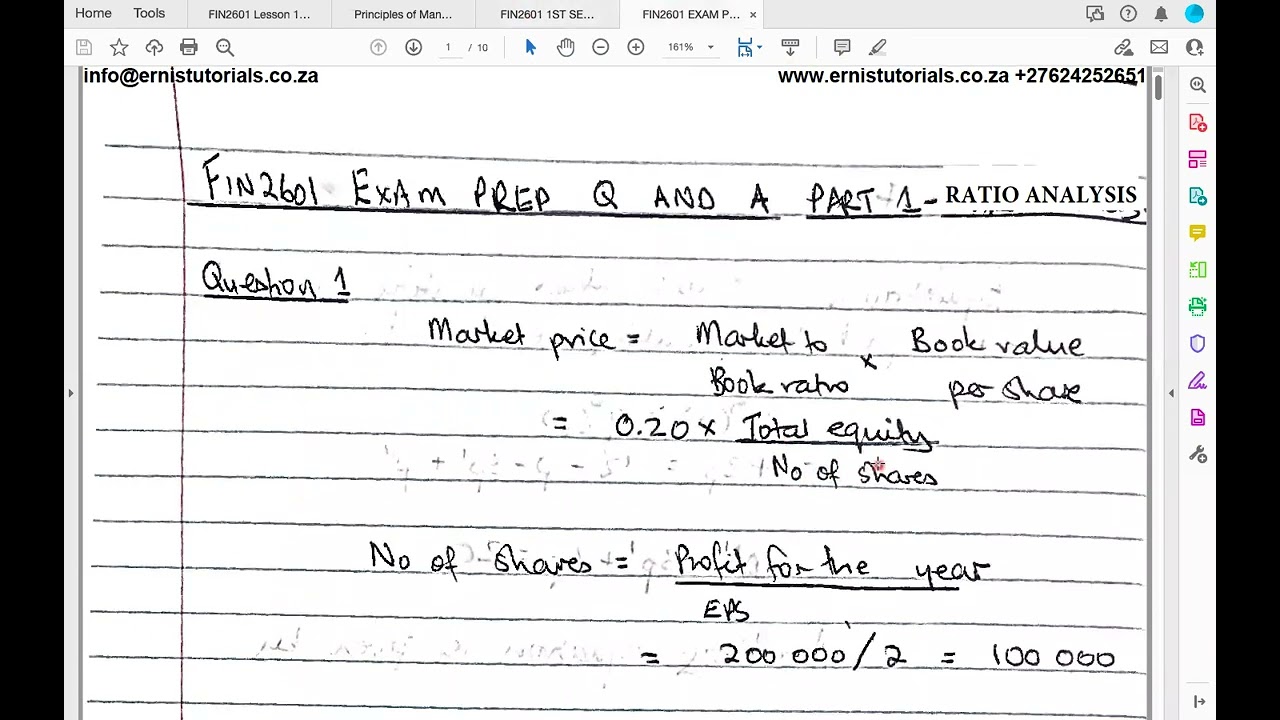 Home Tools FIN2601 Lesson 1... Principles of Man... FIN2601 1ST SE... FIN2601 EXAM P... ×
1 / 10 161%
info@ernistutorials.co.za www.ernistutorials.co.za +27624252651
FIN2601 EXAM PREP Q AND A PART 1 - RATIO ANALYSIS
Question 1
Market price = Market to × Book value
Book ratio per share
= 0.20 × Total equity
No of shares
No of shares = Profit for the year
EPS
= 200 000 / 2 = 100 000